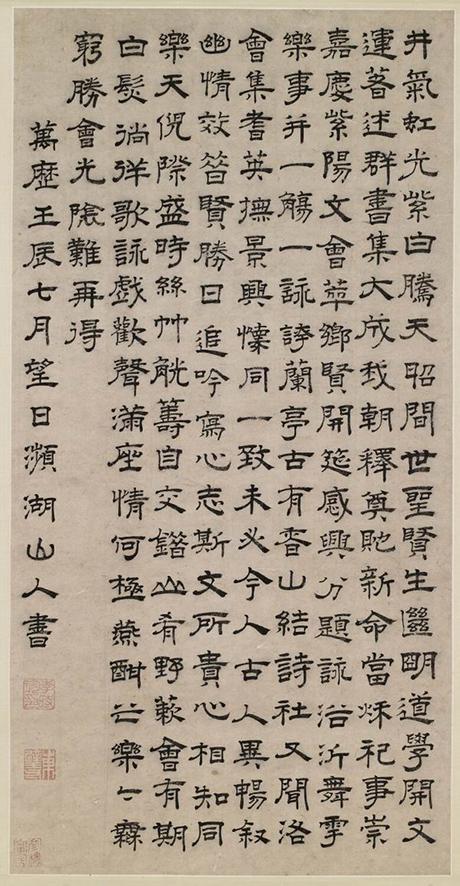 井氣虹光紫白騰天昭間世聖賢生繼明道學開文
運著述群書集大成我朝釋奠貤新命當秌祀事崇
嘉慶紫陽文會萃鄉賢開筵感興分題詠浴沂舞雩
樂事并一觴一詠誇蘭亭古有香山結詩社又聞洛
會集耆英撫景興懷同一致未必今人古人異暢叙
幽情效昝賢勝日追吟寫心志斯文所貴心相知同
樂天倪際盛時絲竹觥籌自交錯山肴野蔌會有期
白髮徜徉歌詠戲歡聲滿座情何極燕酣兴樂樂
窮勝會光陰難再得
萬歷壬辰七月望日瀕湖山人書